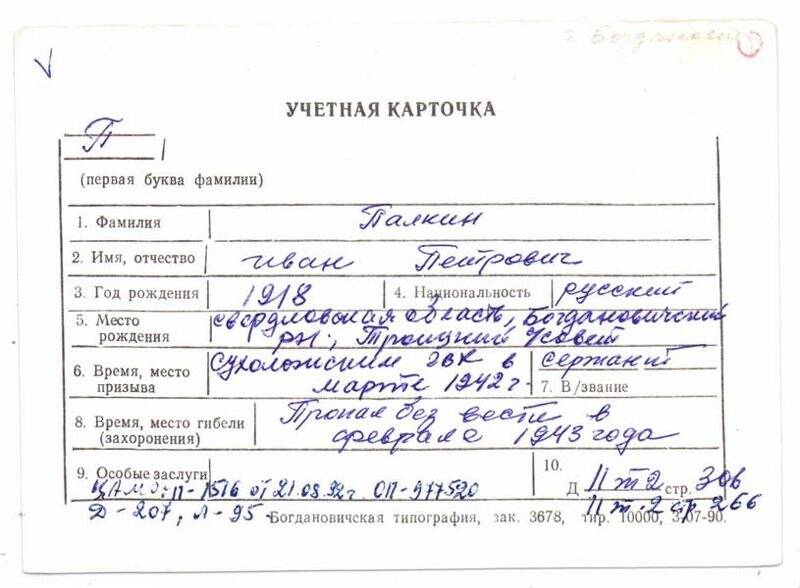 г. Богданович
УЧЕТНАЯ КАРТОЧКА
П
(первая буква фамилии)
1. Фамилия Палкин
2. Имя, отчество Иван Петрович
3. Год рождения 1918 4. Национальность русский
5. Место рождения Свердловская область, Богдановичский
рн., Троицкий с/совет
6. Время, место призыва Сухоложским РВК в
марте 1942 г.
7. В/звание сержант
8. Время, место гибели (захоронения) Пропал без вести в
феврале 1943 года
9. Особые заслуги
ЦАМО: П-1516 от 21.08.92г. ОП-977520
Д-207, Л-95.
10.
Д II т 2 стр. 306
II т. 2 стр 266
Богдановичская типография, зак. 3678, тир. 10000, 3.07-90.